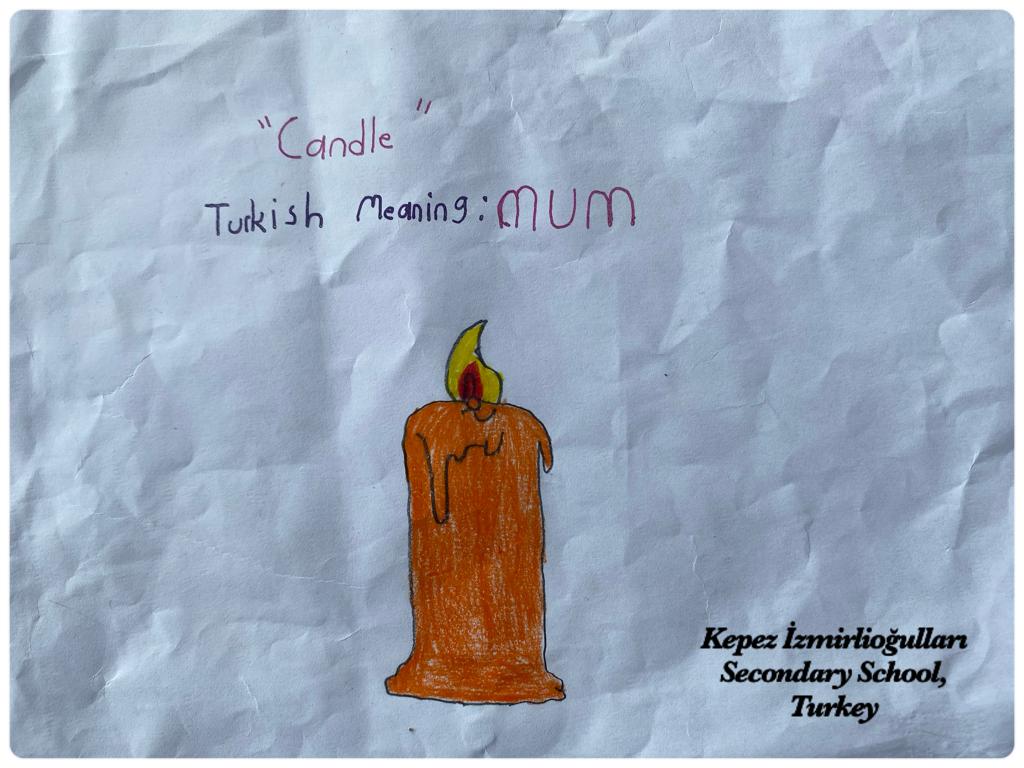 "Candle"
Turkish Meaning: MUM
Kepez İzmirlioğulları
Secondary School,
Turkey